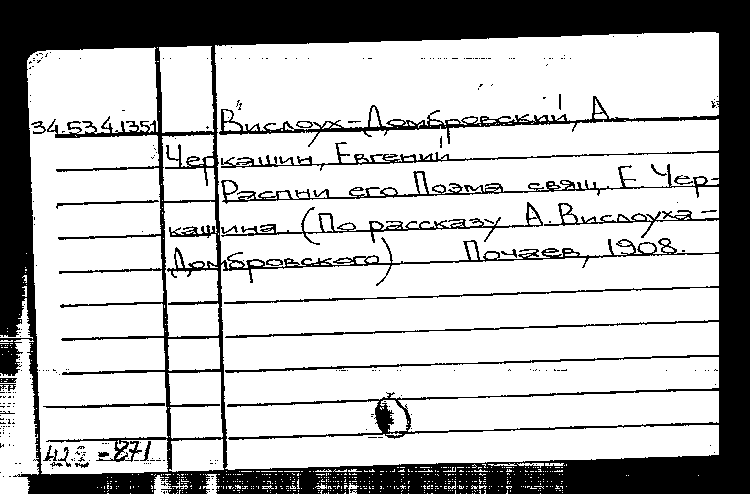 34.534.1351 Вислоух-Домбровский, А.
Черкашин, Евгений
Распни его Поэма свящ. Е. Чер-
кашина. (По рассказу А. Вислоуха-
Домбровского) Почаев, 1908.
-871